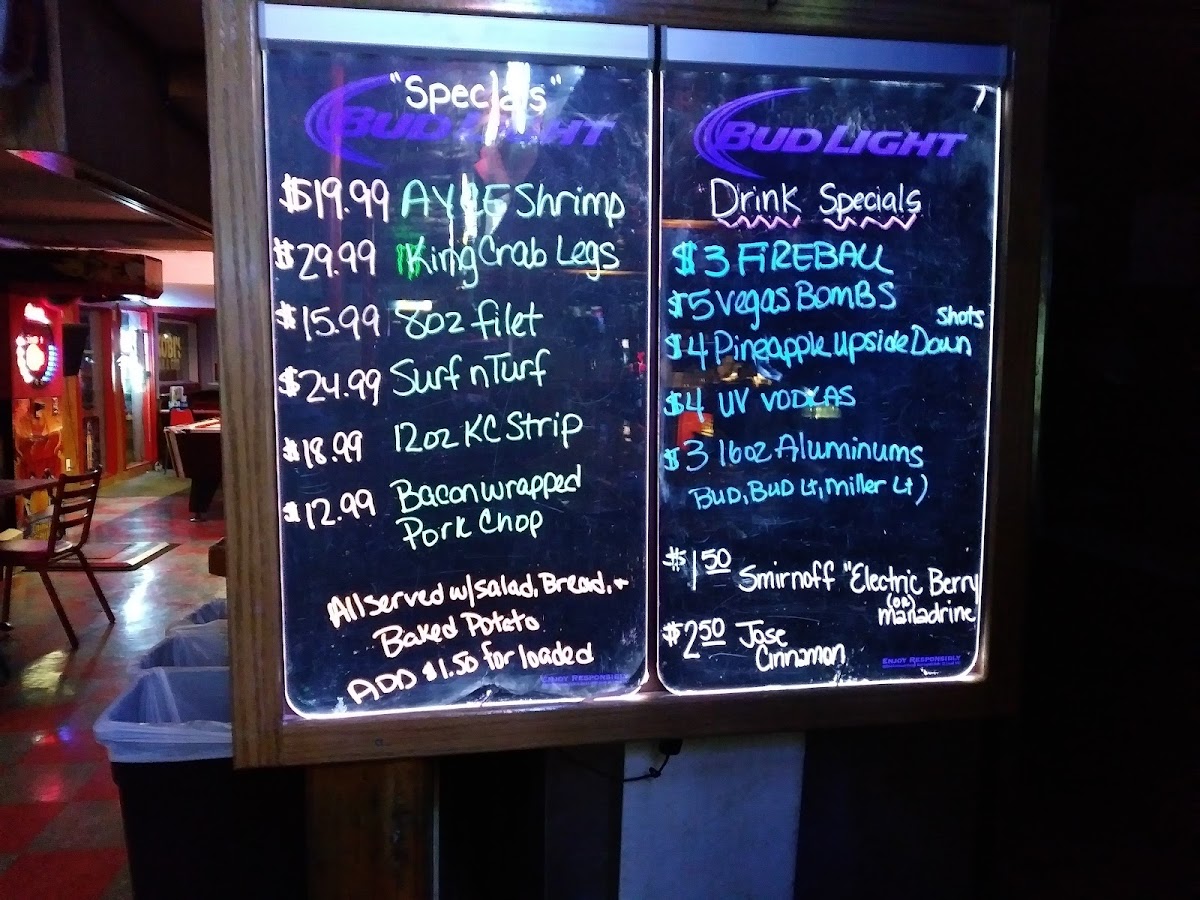 "Specials"
BUD LIGHT
$19.99 AYCE Shrimp
$29.99 King Crab Legs
$15.99 8oz filet
$24.99 Surf n Turf
$18.99 12oz KC Strip
$12.99 Bacon wrapped
Pork Chop
All served w/salad, Bread, +
Baked Potato
ADD $1.50 for loaded
ENJOY RESPONSIBLY
BUD LIGHT
Drink Specials
$3 FIREBALL
$5 Vegas BOMBS
Shots
$4 Pineapple Upside Down
$4 UV VODKAS
$3 16oz Aluminums
BUD, BUD Lt, Miller Lt)
$1.50 Smirnoff "Electric Berry
(OR)
Manadrine
$2.50 Jose
Cinnamon
ENJOY RESPONSIBLY